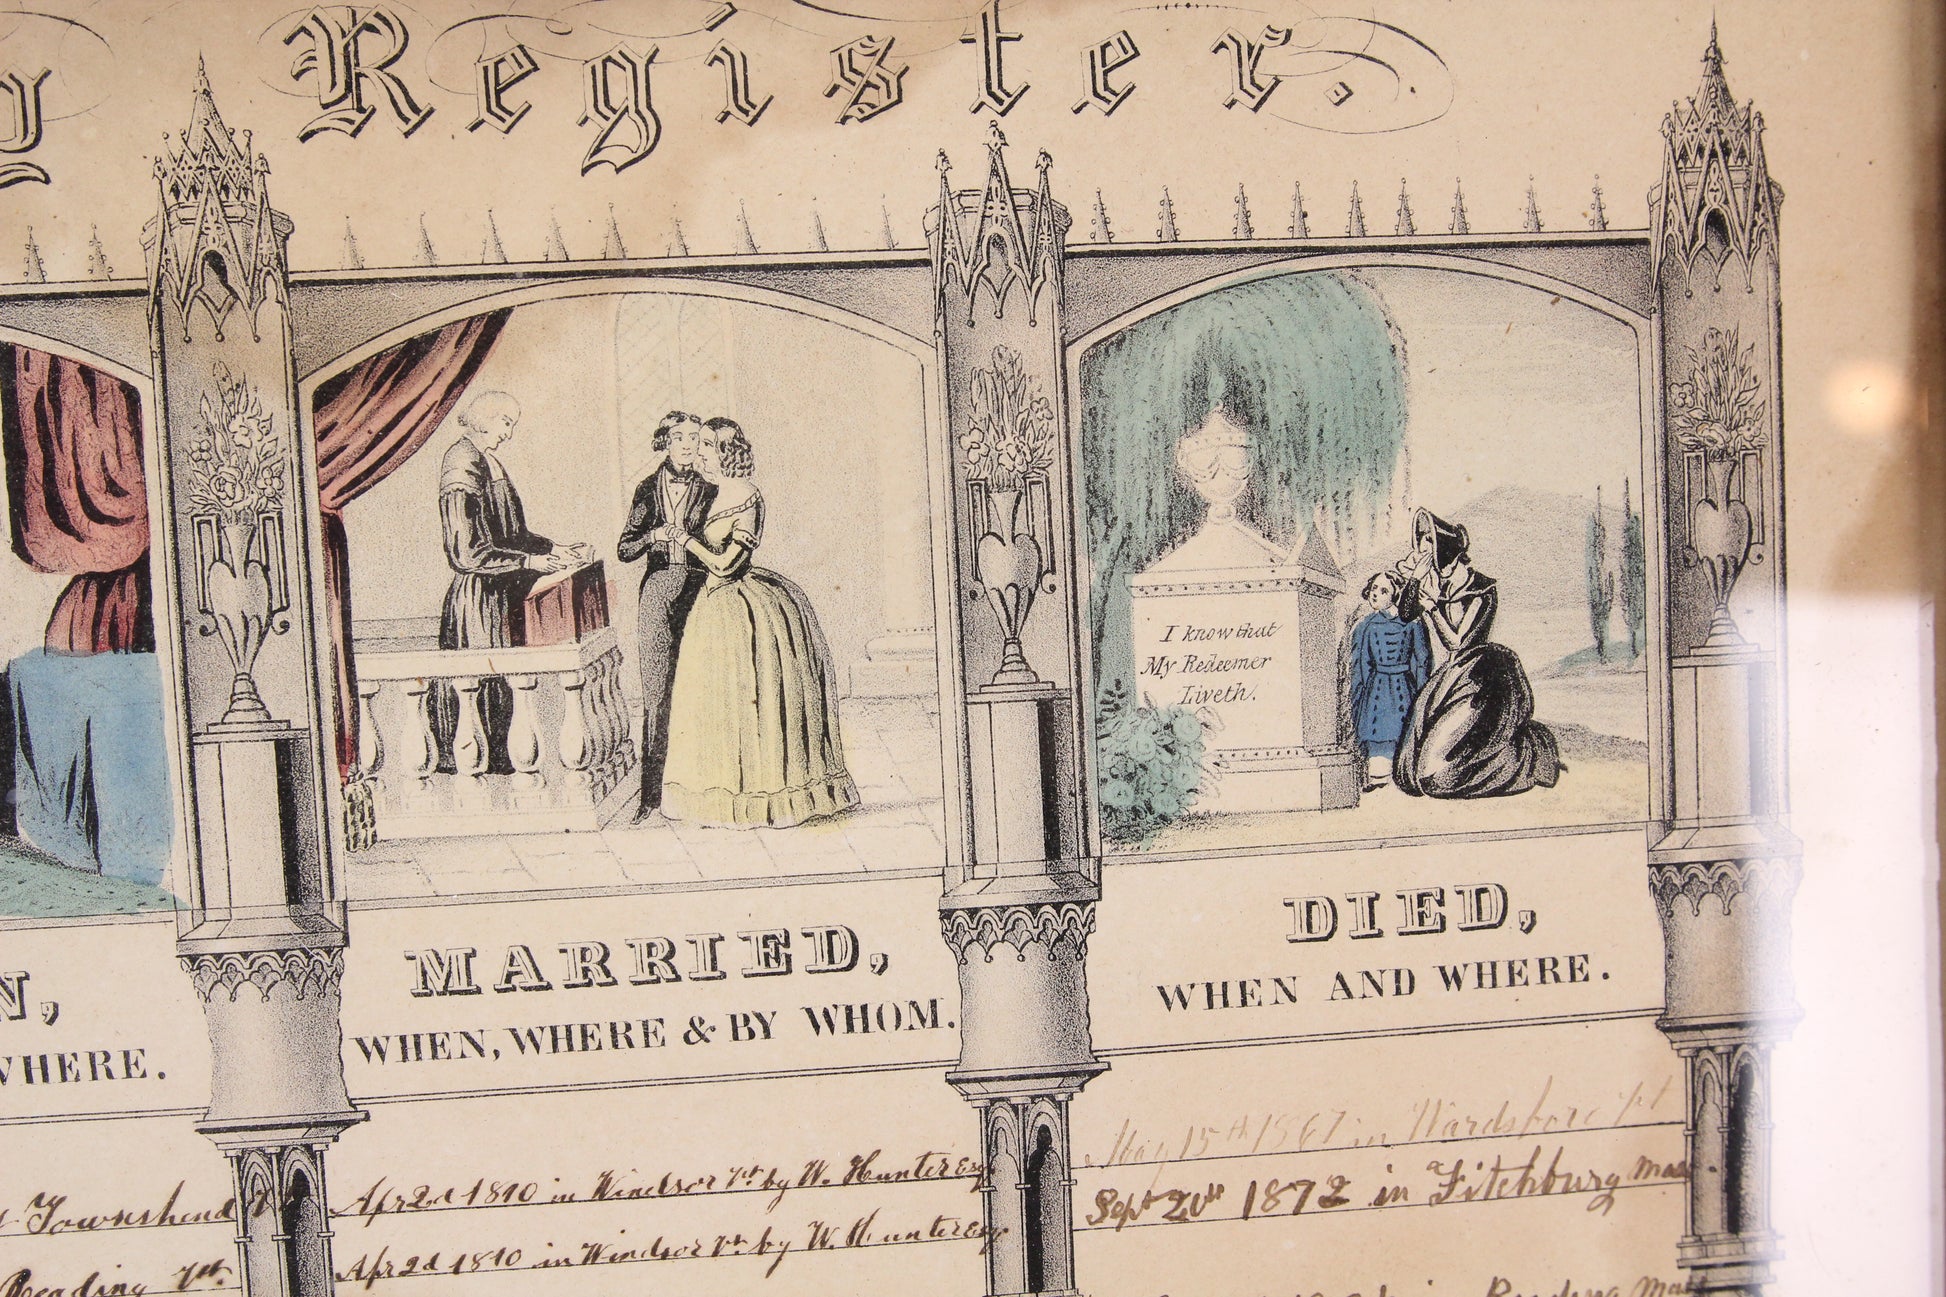 y Register.
I know that
My Redeemer
Liveth.
N,
WHERE.
MARRIED,
WHEN, WHERE & BY WHOM.
DIED,
WHEN AND WHERE.
Townshend Vt
Reading Vt
Apr 2d 1810 in Windsor Vt by W. Hunter Esq
Apr 2d 1810 in Windsor Vt by W. Hunter Esq
May 15th 1867 in Wardsboro Vt
Sept 20th 1872 in Fitchburg Mass
in Reading Mass